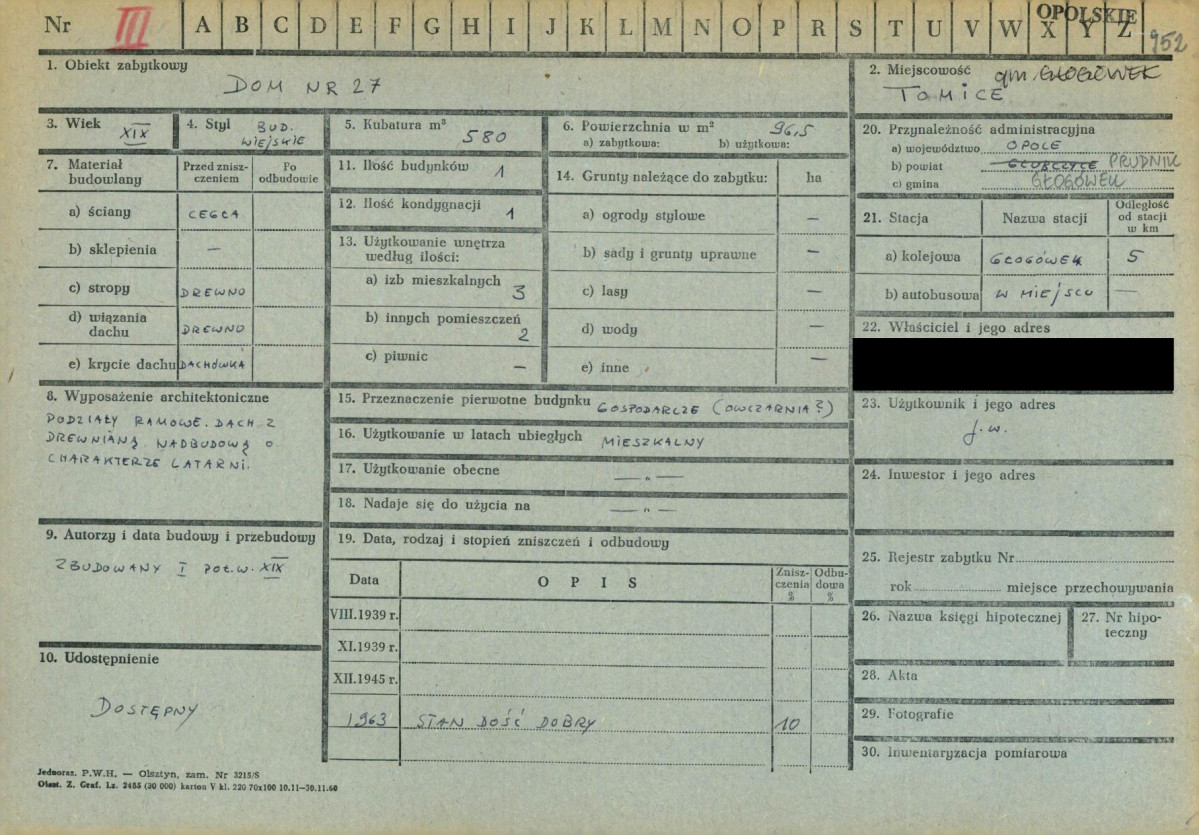 Nr III A B C D E F G H I J K L M N O P R S T U V W X Y Z
OPOLSKIE
952
1. Obiekt zabytkowy
DOM NR 27
2. Miejscowość gm. GŁOGÓWEK
TOMICE
3. Wiek
XIX
4. Styl BUD.
WIEJSKIE
5. Kubatura m³
580
6. Powierzchnia w m² 96,5
a) zabytkowa: b) użytkowa:
20. Przynależność administracyjna
a) województwo OPOLE
b) powiat GŁUBCZYCE PRUDNIK
c) gmina GŁOGÓWEK
7. Materiał
budowlany
Przed znisz-
czeniem
Po
odbudowie
a) ściany CEGŁA
b) sklepienia —
c) stropy DREWNO
d) wiązania
dachu DREWNO
e) krycie dachu DACHÓWKA
11. Ilość budynków 1
12. Ilość kondygnacji 1
13. Użytkowanie wnętrza
według ilości:
a) izb mieszkalnych 3
b) innych pomieszczeń 2
c) piwnic —
14. Grunty należące do zabytku: ha
a) ogrody stylowe —
b) sady i grunty uprawne —
c) lasy —
d) wody —
e) inne —
21. Stacja Nazwa stacji
Odległość
od stacji
w km
a) kolejowa GŁOGÓWEK 5
b) autobusowa W MIEJSCU —
22. Właściciel i jego adres
8. Wyposażenie architektoniczne
PODZIAŁY RAMOWE. DACH Z
DREWNIANĄ NADBUDOWĄ O
CHARAKTERZE LATARNI.
15. Przeznaczenie pierwotne budynku GOSPODARCZE (OWCZARNIA?)
16. Użytkowanie w latach ubiegłych MIESZKALNY
17. Użytkowanie obecne —„—
18. Nadaje się do użycia na —„—
23. Użytkownik i jego adres
j.w.
24. Inwestor i jego adres
9. Autorzy i data budowy i przebudowy
ZBUDOWANY I POŁ. W. XIX
19. Data, rodzaj i stopień zniszczeń i odbudowy
Data OPIS
Znisz-
czenia
%
Odbu-
dowa
%
VIII.1939 r.
XI.1939 r.
XII.1945 r.
1963 STAN DOŚĆ DOBRY 10
10. Udostępnienie
DOSTĘPNY
25. Rejestr zabytku Nr
rok miejsce przechowywania
26. Nazwa księgi hipotecznej
27. Nr hipo-
teczny
28. Akta
29. Fotografie
30. Inwentaryzacja pomiarowa
Jednoraz. P.W.H. — Olsztyn, zam. Nr 3215/S
Olszt. Z. Graf. Lz. 2485 (30 000) karton V kl. 220 70x100 10.11—30.11.60